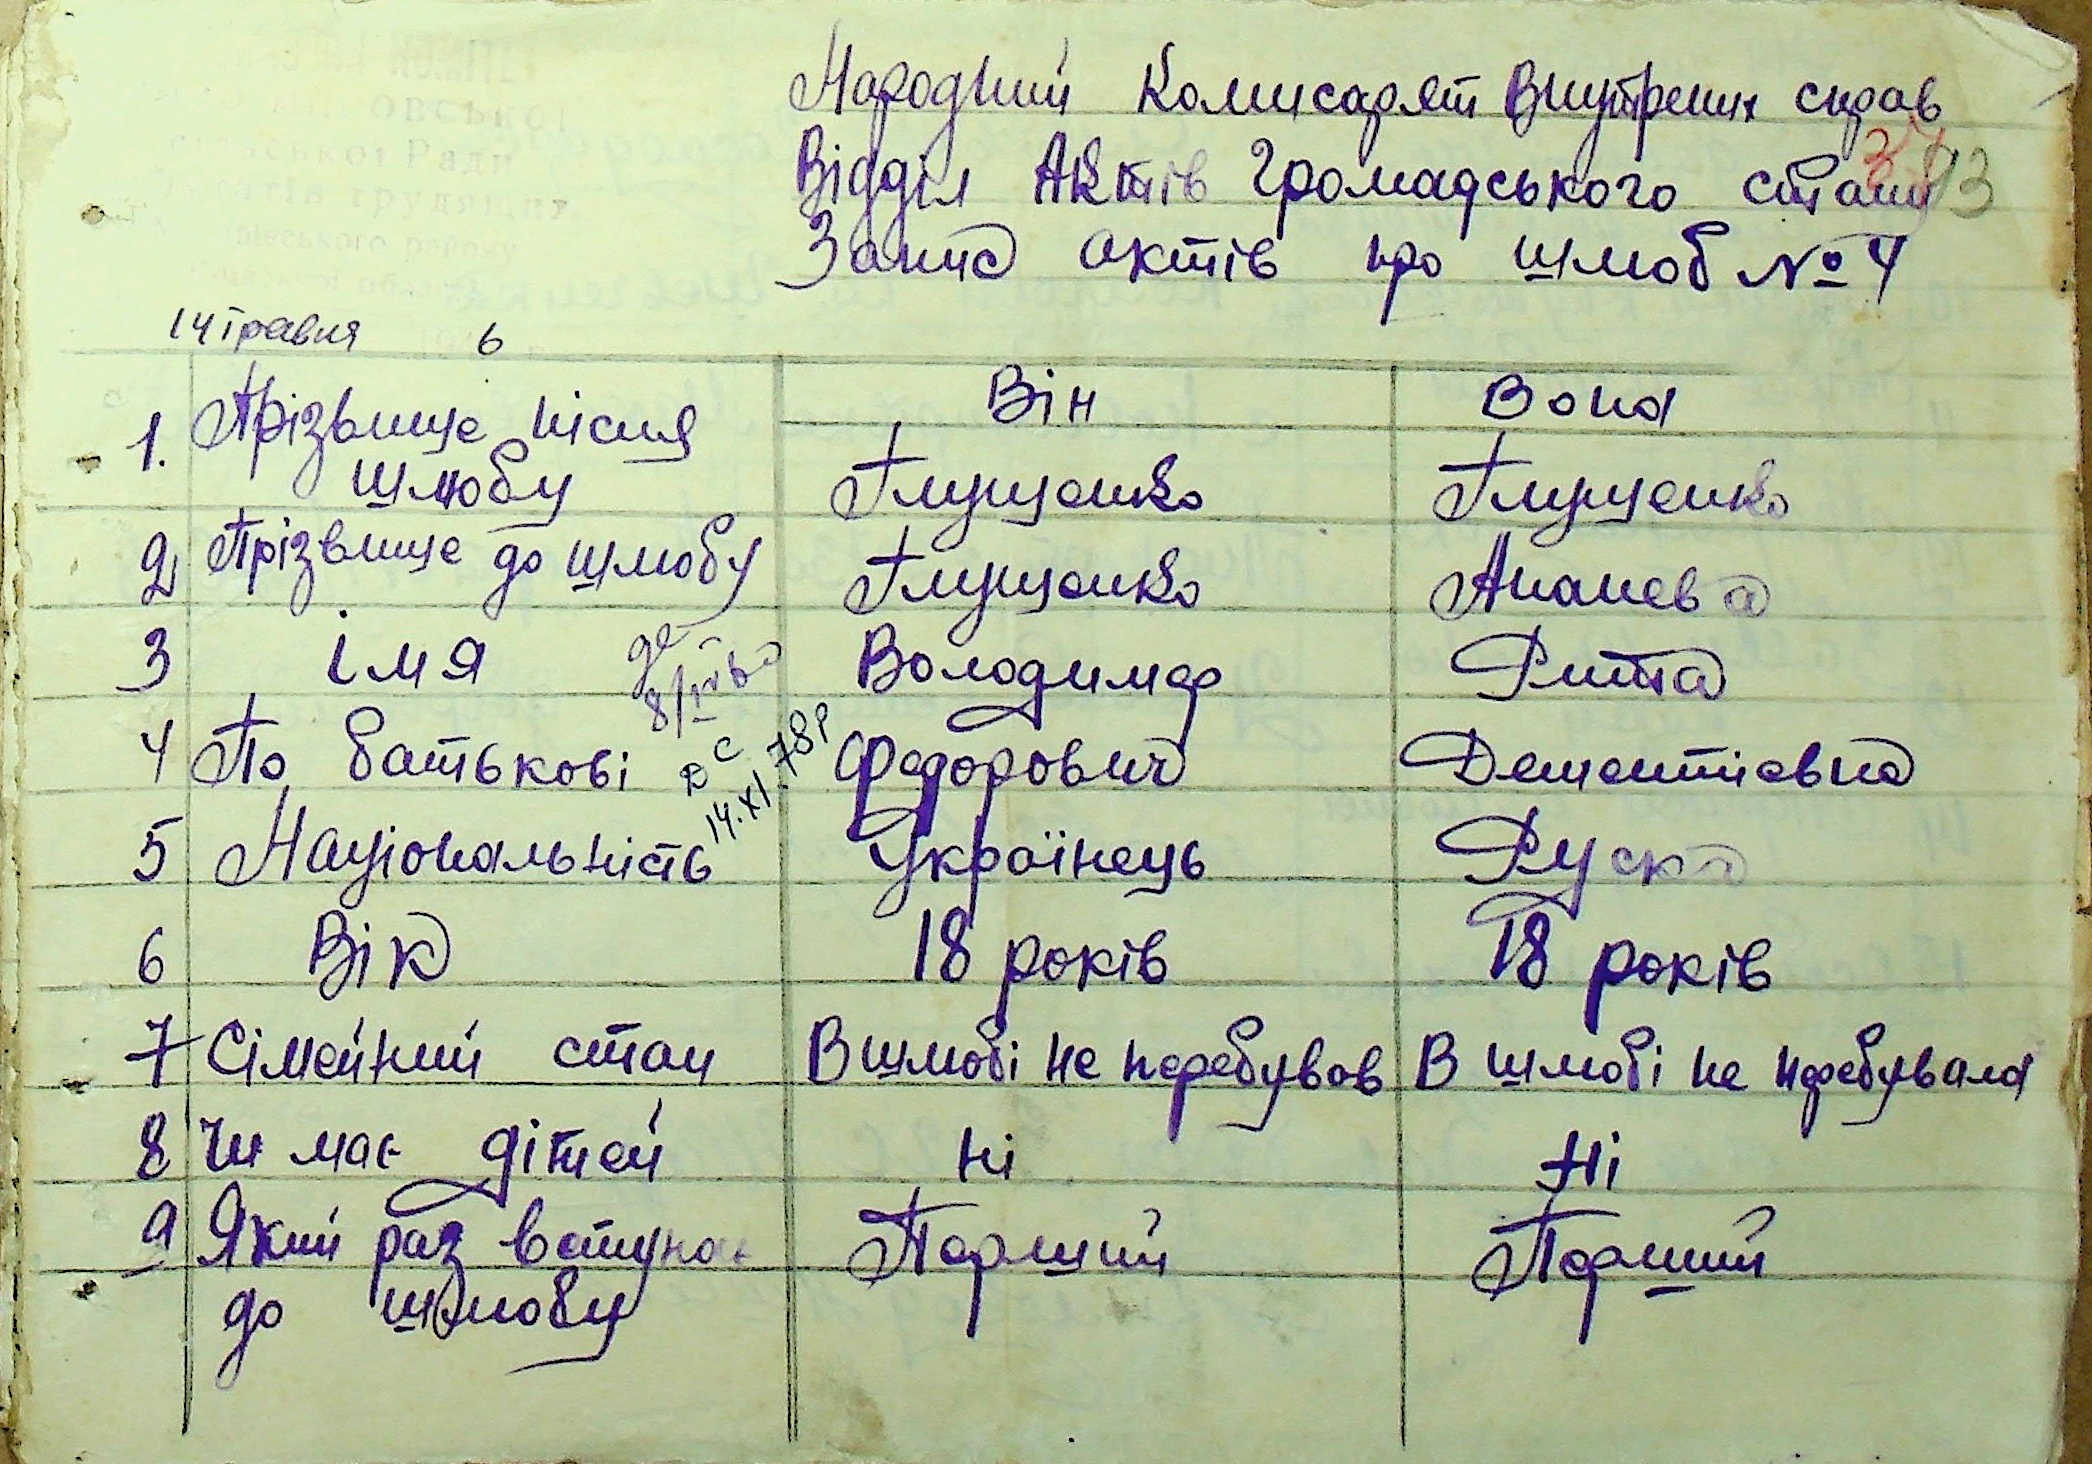 Народний Комисарят Внутрених справ
Відділ Актів Громадського стану
Запис актів про шлюб № 4
14 травня 6
Він Вона
1. Прізвище після шлюбу Глущенко Глущенко
2 Прізвище до шлюбу Глущенко Ананева
3 імя Володимер Рита
4 По батькові Федорович Дементієвна
ДС
14.XI.78р
5 Національність Українець Руска
6 Вік 18 років 18 років
7 Сімейний стан В шлюбі не перебував В шлюбі не перебувала
8 Чи має дітей Ні Ні
9 Який раз вступає до шлюбу Перший Перший